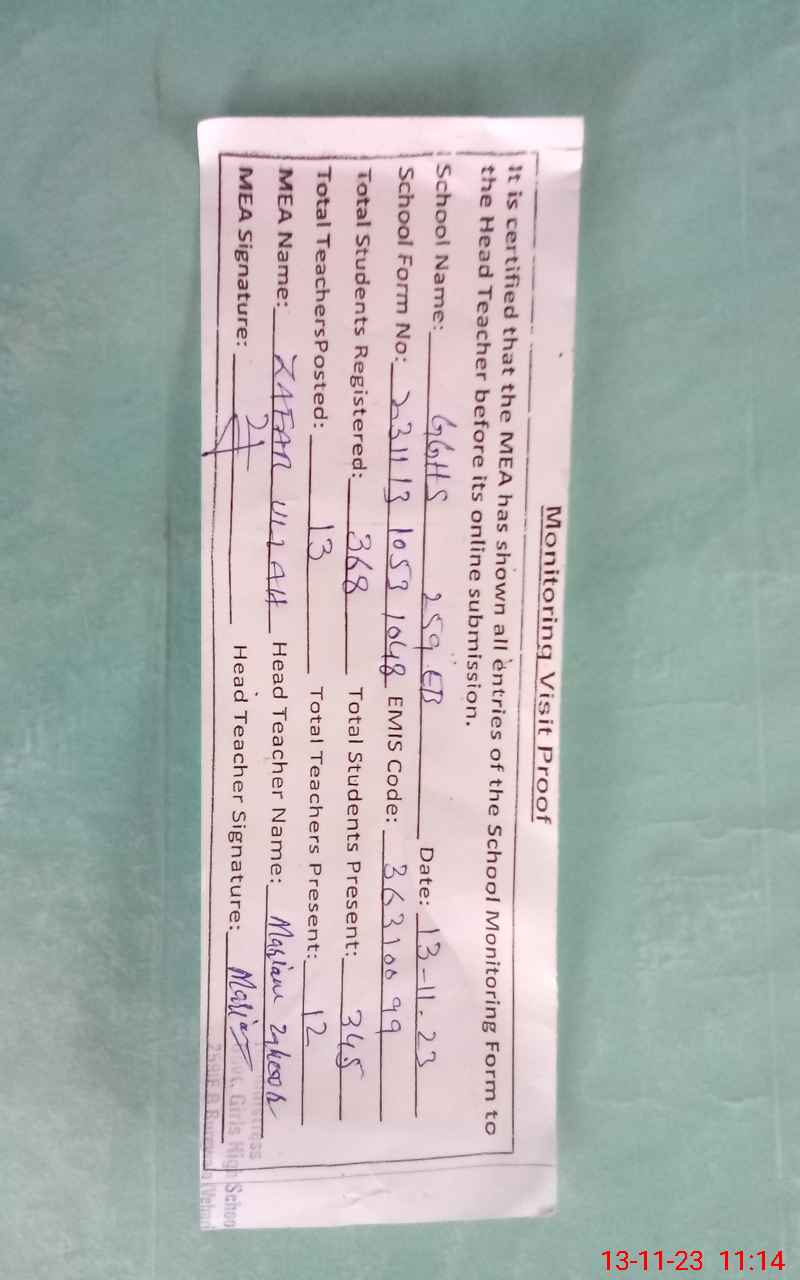 Monitoring Visit Proof
It is certified that the MEA has shown all entries of the School Monitoring Form to
the Head Teacher before its online submission.
School Name: GGHS 259 EB Date: 13-11-23
School Form No: 231113 1053 1048 EMIS Code: 36310099
Total Students Registered: 368 Total Students Present: 345
Total TeachersPosted: 13 Total Teachers Present: 12
MEA Name: ZAFAR ULLAH Head Teacher Name: Mariam
MEA Signature: Head Teacher Signature:
Girls High Schoo
259/E.B
13-11-23 11:14